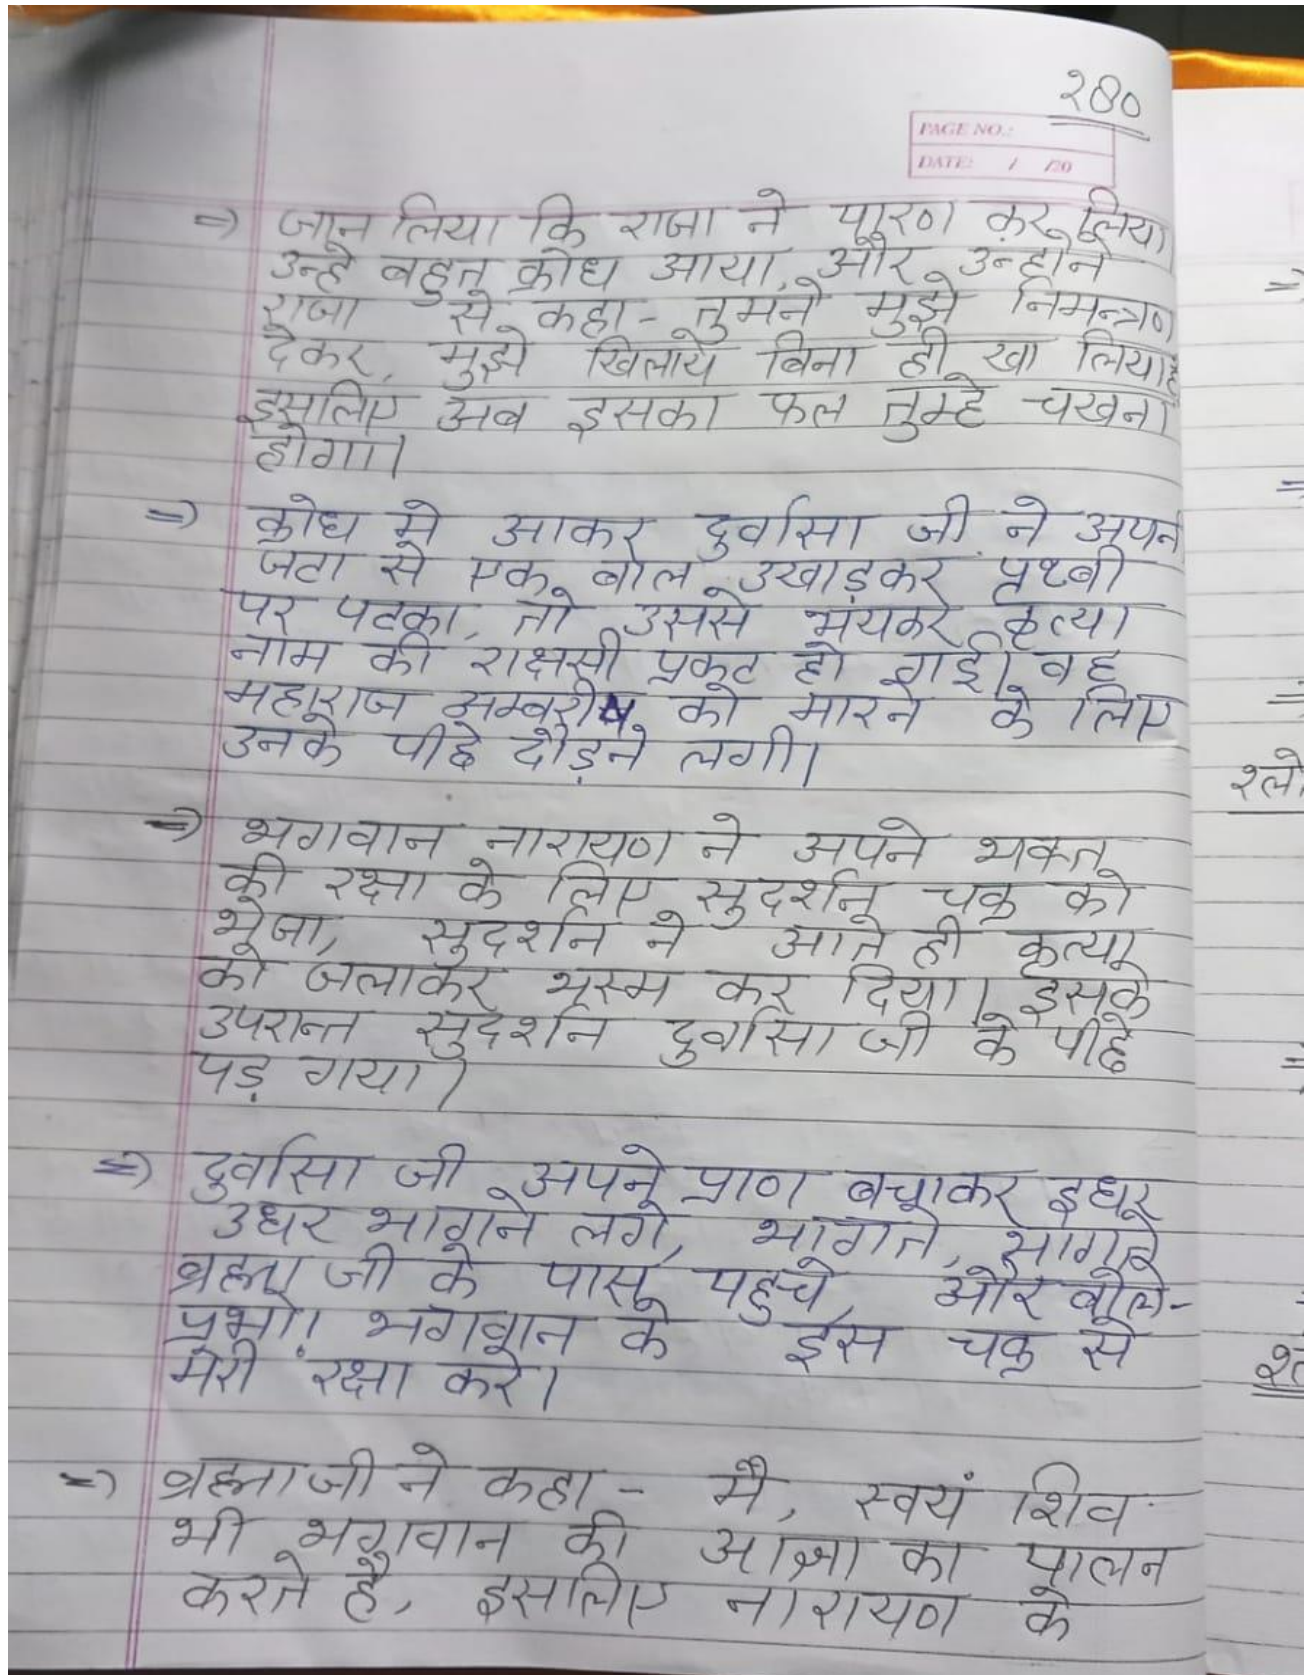 २४०
PAGE NO.:
DATE: / /20
=> जान लिया कि राजा ने पारण कर लिया
उन्हे बहुत क्रोध आया, और उन्होने
राजा से कहा - तुमने मुझे निमन्त्रण
देकर, मुझे खिलाये बिना ही खा लिया है
इसलिए अब इसका फल तुम्हे चखना
होगा।
=> क्रोध मे आकर दुर्वासा जी ने अपने
जटा से एक बाल उखाड़कर पृथ्वी
पर पटका, तो उससे भंयकर कृत्या
नाम की राक्षसी प्रकट हो गई। वह
महाराज अम्बरीष को मारने के लिए
उनके पीछे दौड़ने लगी।
=> भगवान नारायण ने अपने भक्त
की रक्षा के लिए सुदर्शन चक्र को
भेजा, सुदर्शन ने आते ही कृत्या
को जलाकर भस्म कर दिया। इसके
उपरान्त सुदर्शन दुर्वासा जी के पीछे
पड़ गया।
=> दुर्वासा जी अपने प्राण बचाकर इधर
उधर भागने लगे, भागते, भागते
ब्रह्मा जी के पास पहुचे, और बोले-
प्रभो! भगवान के इस चक्र से
मेरी रक्षा करे।
=> ब्रह्माजी ने कहा - मै, स्वयं शिव
भी भगवान की आज्ञा का पालन
करते है, इसलिए नारायण के
श्लो